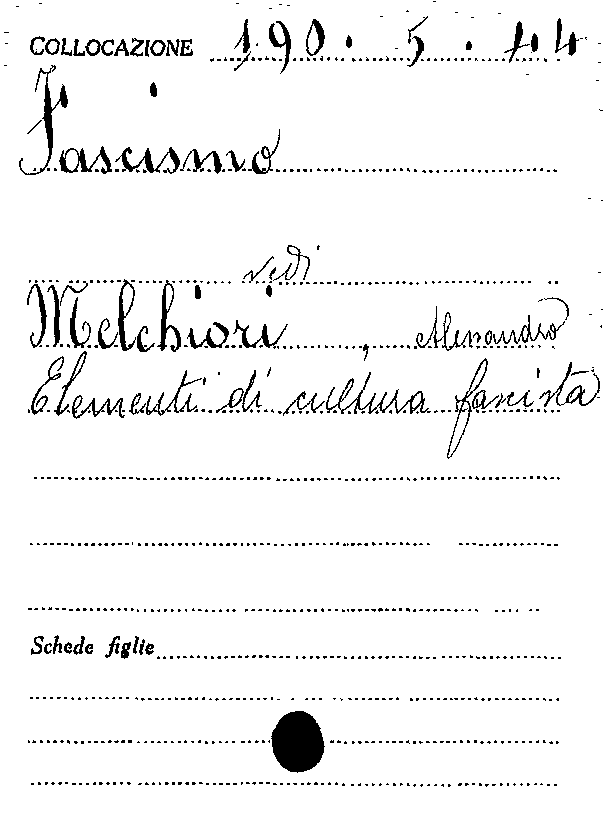 COLLOCAZIONE 190. 5. 44
Fascismo
vedi
Melchiori, Alessandro
Elementi di cultura fascista
Schede figlie